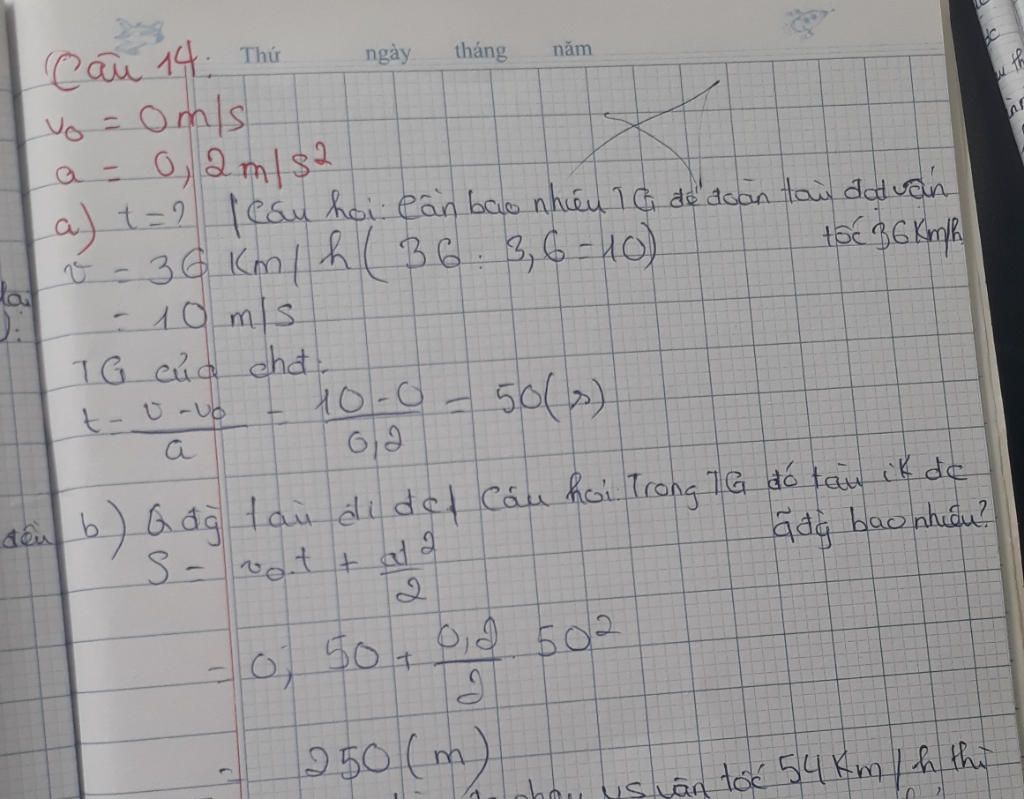 Thứ ngày tháng năm
Câu 14:
v₀ = 0 m/s
a = 0,2 m/s²
a) t = ? | Câu hỏi: Cần bao nhiêu TG để đoàn tàu đạt vận
tốc 36 Km/h
v = 36 Km/h ( 36 : 3,6 = 10)
= 10 m/s
TG của chđ:
t = (v - v₀)/a = (10 - 0)/0,2 = 50 (s)
b) Q đg tàu đi đc | Câu hỏi: Trong TG đó tàu đc
Q đg bao nhiêu?
S = v₀.t + at²/2
= 0, 50 + 0,2/2 . 50²
= 250 (m)
vận tốc 54 Km/h thì
đều